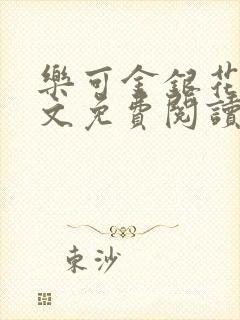 樂可金銀花
文免費閱讀
東沙